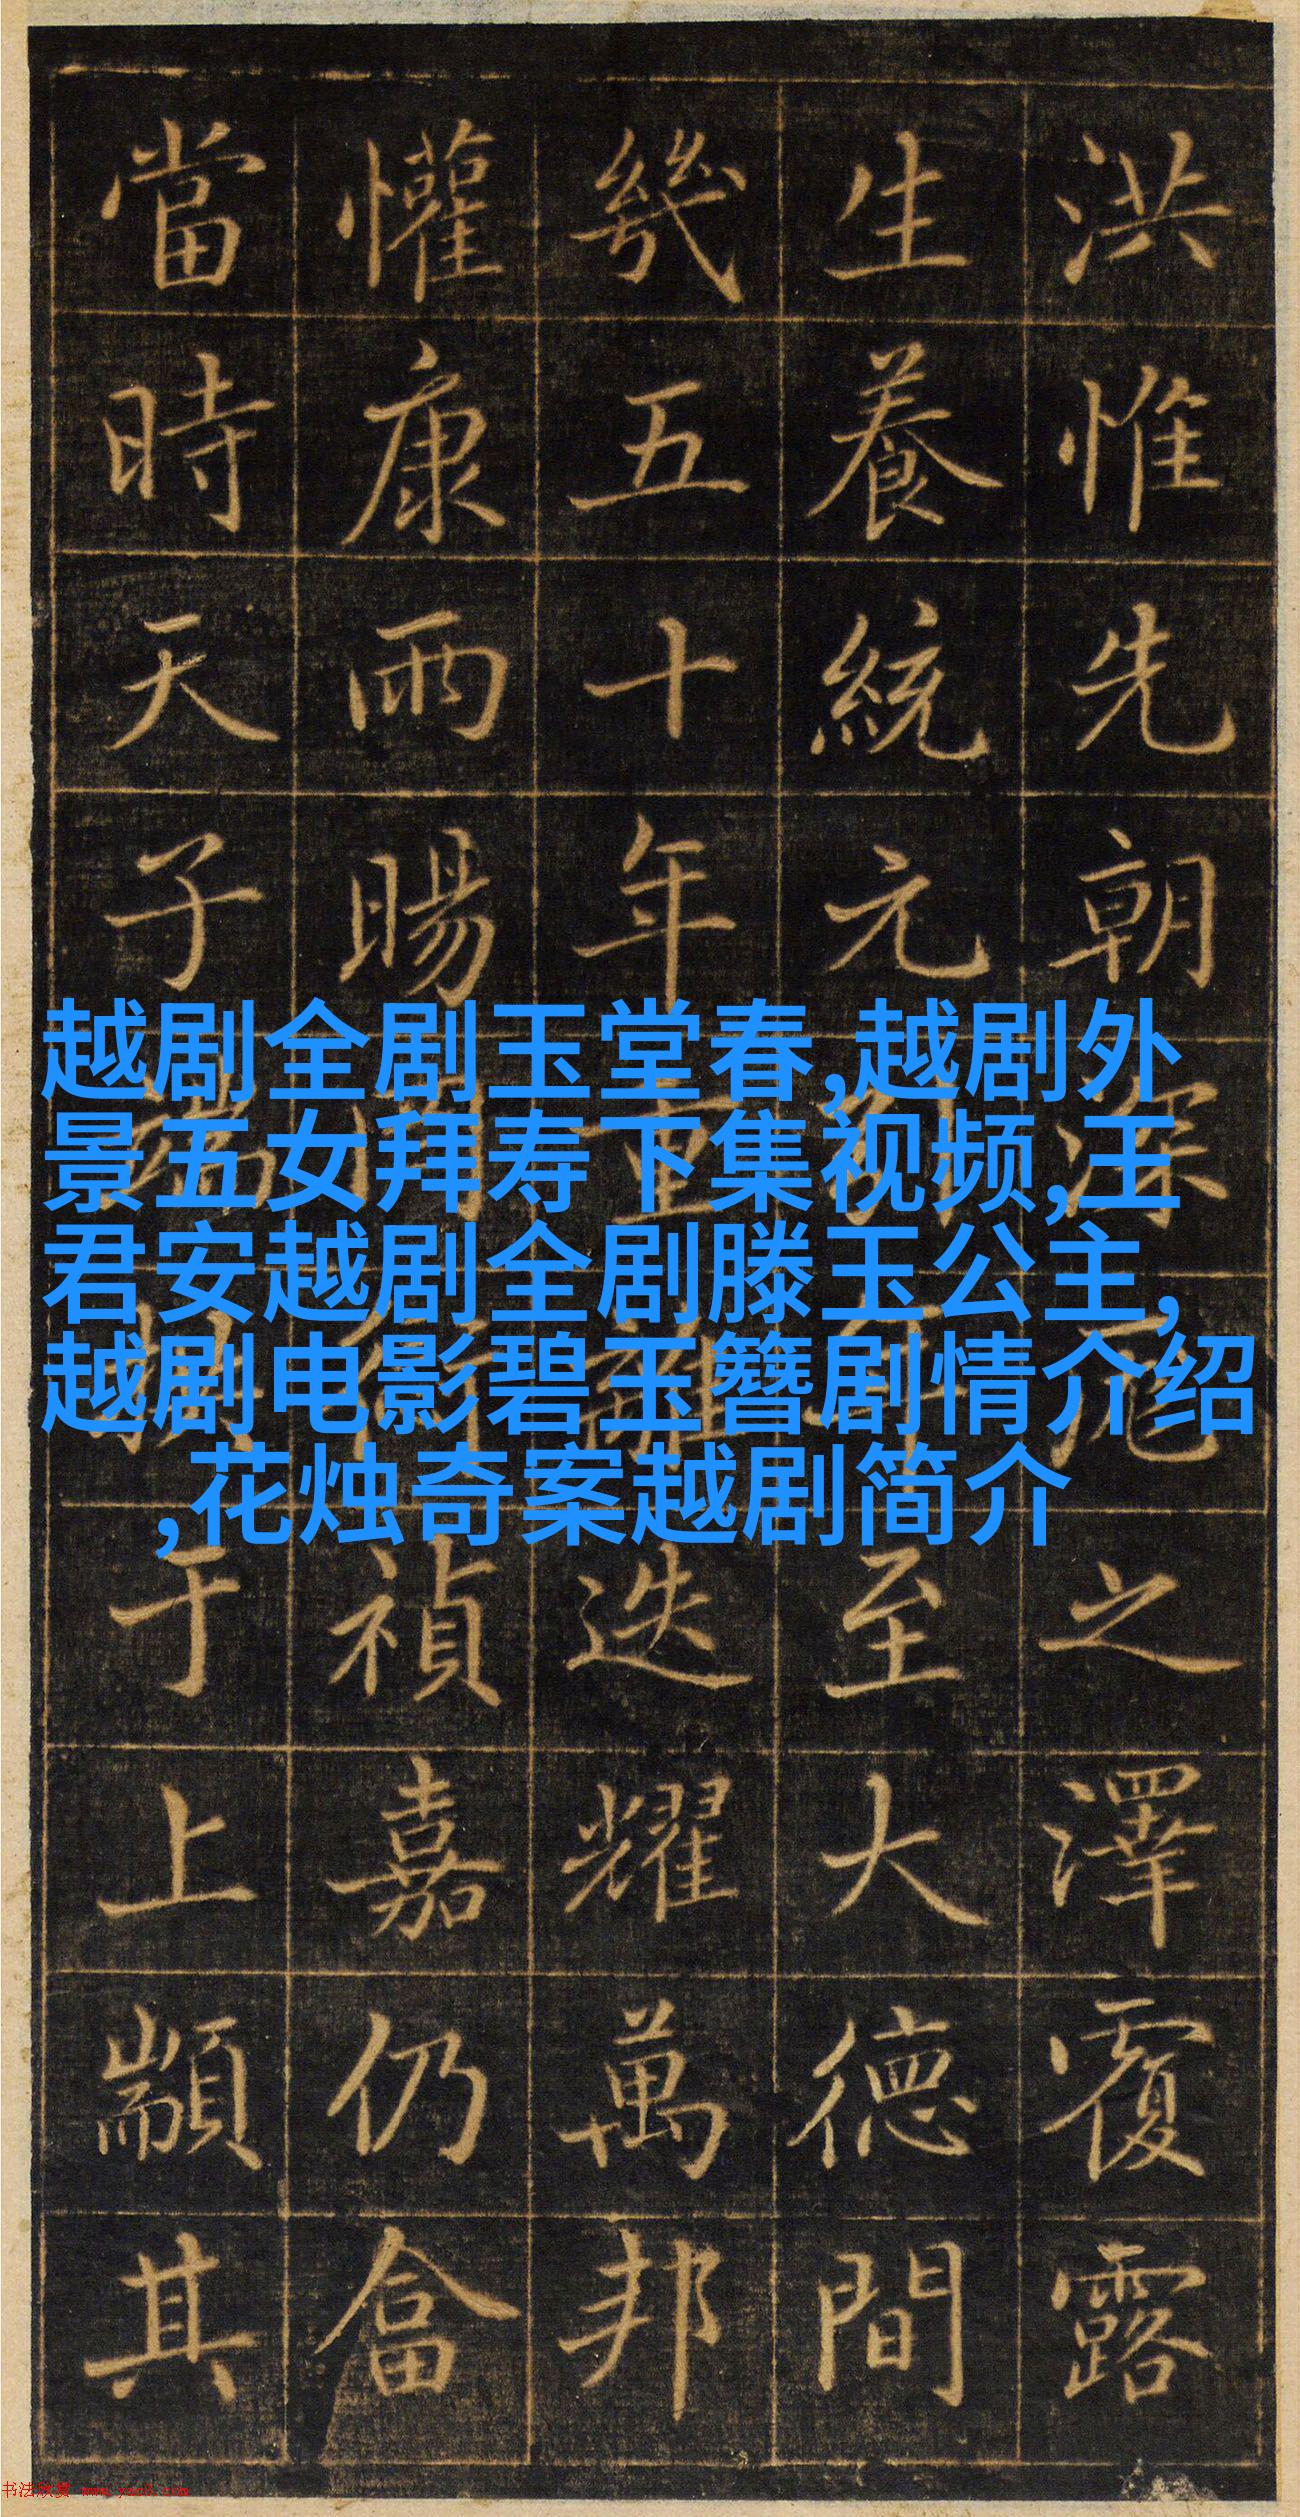 洪惟先朝深之澤覆露
生養統元至大德間
幾五十年重離迭耀萬邦
懽康雨暘禎嘉仍畣
當時天子端于上顒其
越剧全剧玉堂春,越剧外
景五女拜寿下集视频,王
君安越剧全剧滕玉公主,
越剧电影碧玉簪剧情介绍
,花烛奇案越剧简介
书法欣赏 www.yac8.com